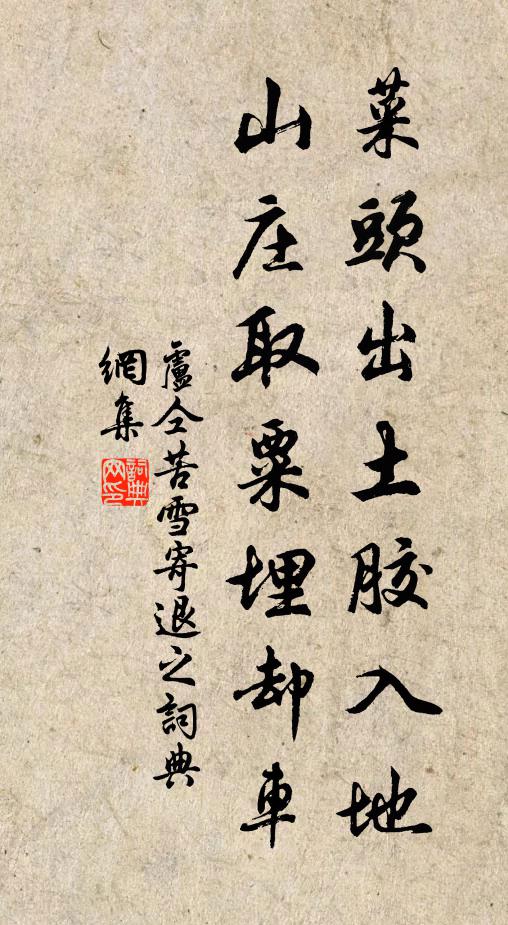 菜頭出土膠入地
山庄取粟埋却車
盧仝苦雪寄退之詞典
網集
詞典
网印